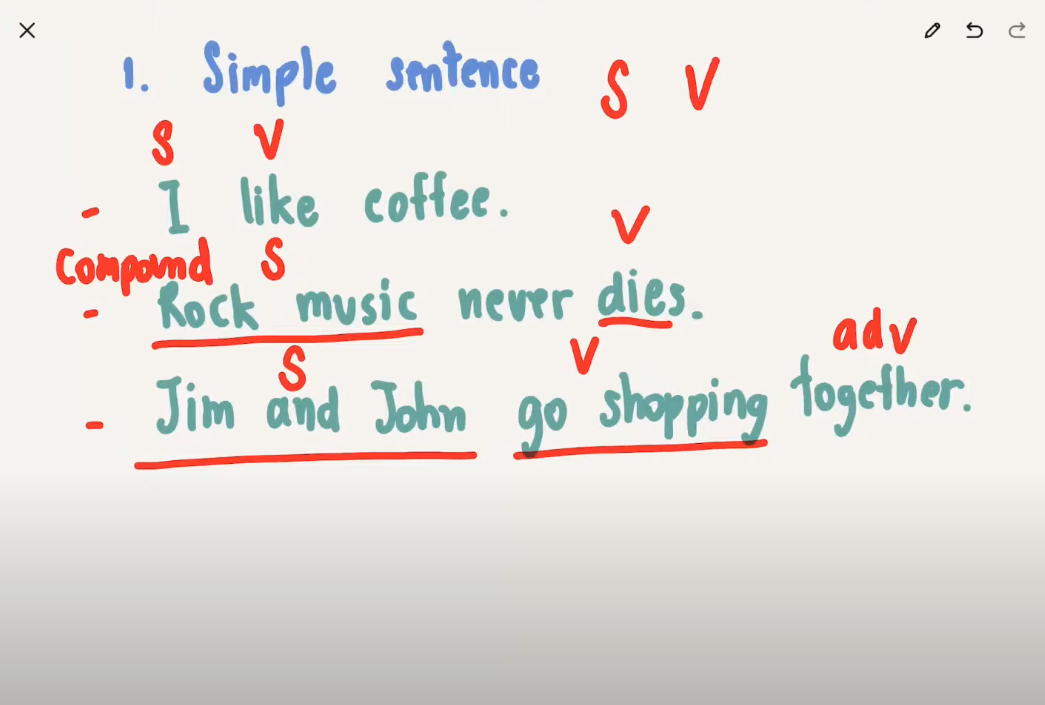 1. Simple sentence S V
S V
- I like coffee.
Compound S V
- Rock music never dies.
S V adv
- Jim and John go shopping together.